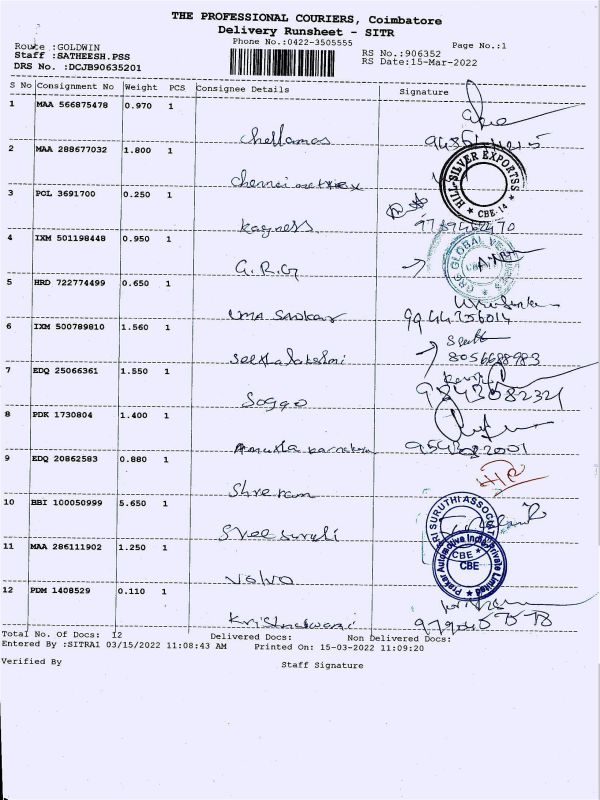 THE PROFESSIONAL COURIERS, Coimbatore
Delivery Runsheet - SITR
Phone No.:0422-3505555
Page No.:1
Route :GOLDWIN
RS No.:906352
Staff :SATHEESH.PSS
RS Date:15-Mar-2022
DRS No. :DCJB90635201
S No Consignment No Weight PCS Consignee Details Signature
1 MAA 566875478 0.970 1
Chellamas
2 MAA 288677032 1.800 1
Chennai
HILL-SILVER EXPORTSS
* CBE-14 *
3 PCL 3691700 0.250 1
Kagness
4 IXM 501198448 0.950 1
G.R.G
GRG GLOBAL
5 HRD 722774499 0.650 1
Uma Sankar
9944256014
6 IXM 500789810 1.560 1
Seethalakshmi
8056688983
7 EDQ 25066361 1.550 1
Soggo
9843082321
8 PDK 1730804 1.400 1
9 EDQ 20862583 0.880 1
Shreram
10 BBI 100050999 5.650 1
Sree suruthi
RI SURUTHI ASSOC
CBE
11 MAA 286111902 1.250 1
Volvo
Automotive India Private Limited
CBE
12 PDM 1408529 0.110 1
Krishnakwari
Total No. Of Docs: 12 Delivered Docs: Non Delivered Docs:
Entered By :SITRA1 03/15/2022 11:08:43 AM Printed On: 15-03-2022 11:09:20
Verified By Staff Signature